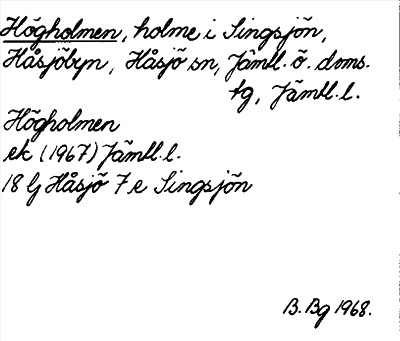 Högholmen, holme i Singsjön,
Håsjöbyn, Håsjö sn, Jämtl. ö. doms.
tg, Jämtl. l.
Högholmen
ek (1967) Jämtl. l.
18 G Håsjö 7 e Singsjön
B. Bg 1968.